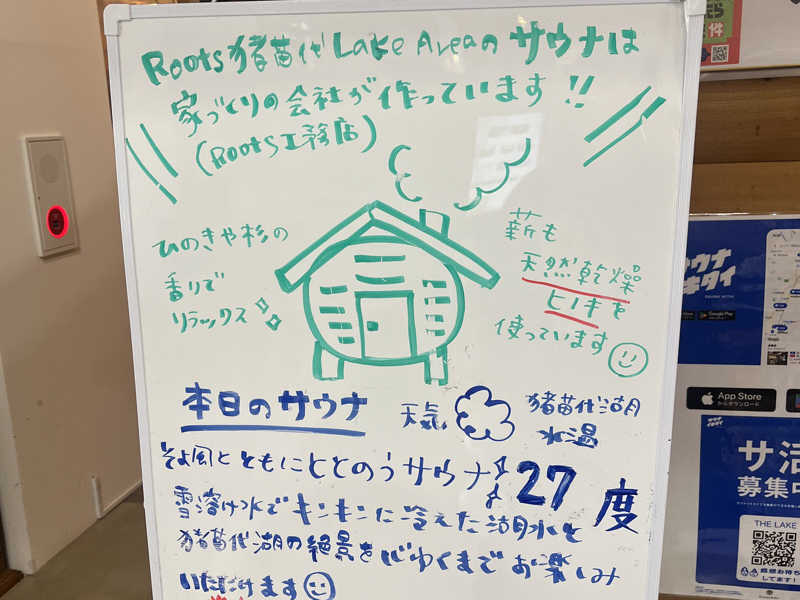 Roots猪苗代Lake Areaの サウナは
家づくりの会社が作っています!!
(Roots工務店)
ひのきや杉の
香りで
リラックス
薪も
天然乾燥
ヒノキを
使っています
本日のサウナ
天気
猪苗代湖
水温
27度
そよ風とともにととのうサウナ
雪溶け水でキンキンに冷えた湖水と
猪苗代湖の絶景を心ゆくまでお楽しみ
いただけます
App Store
からダウンロード
Google Play
サ活
募集中
THE LAKE